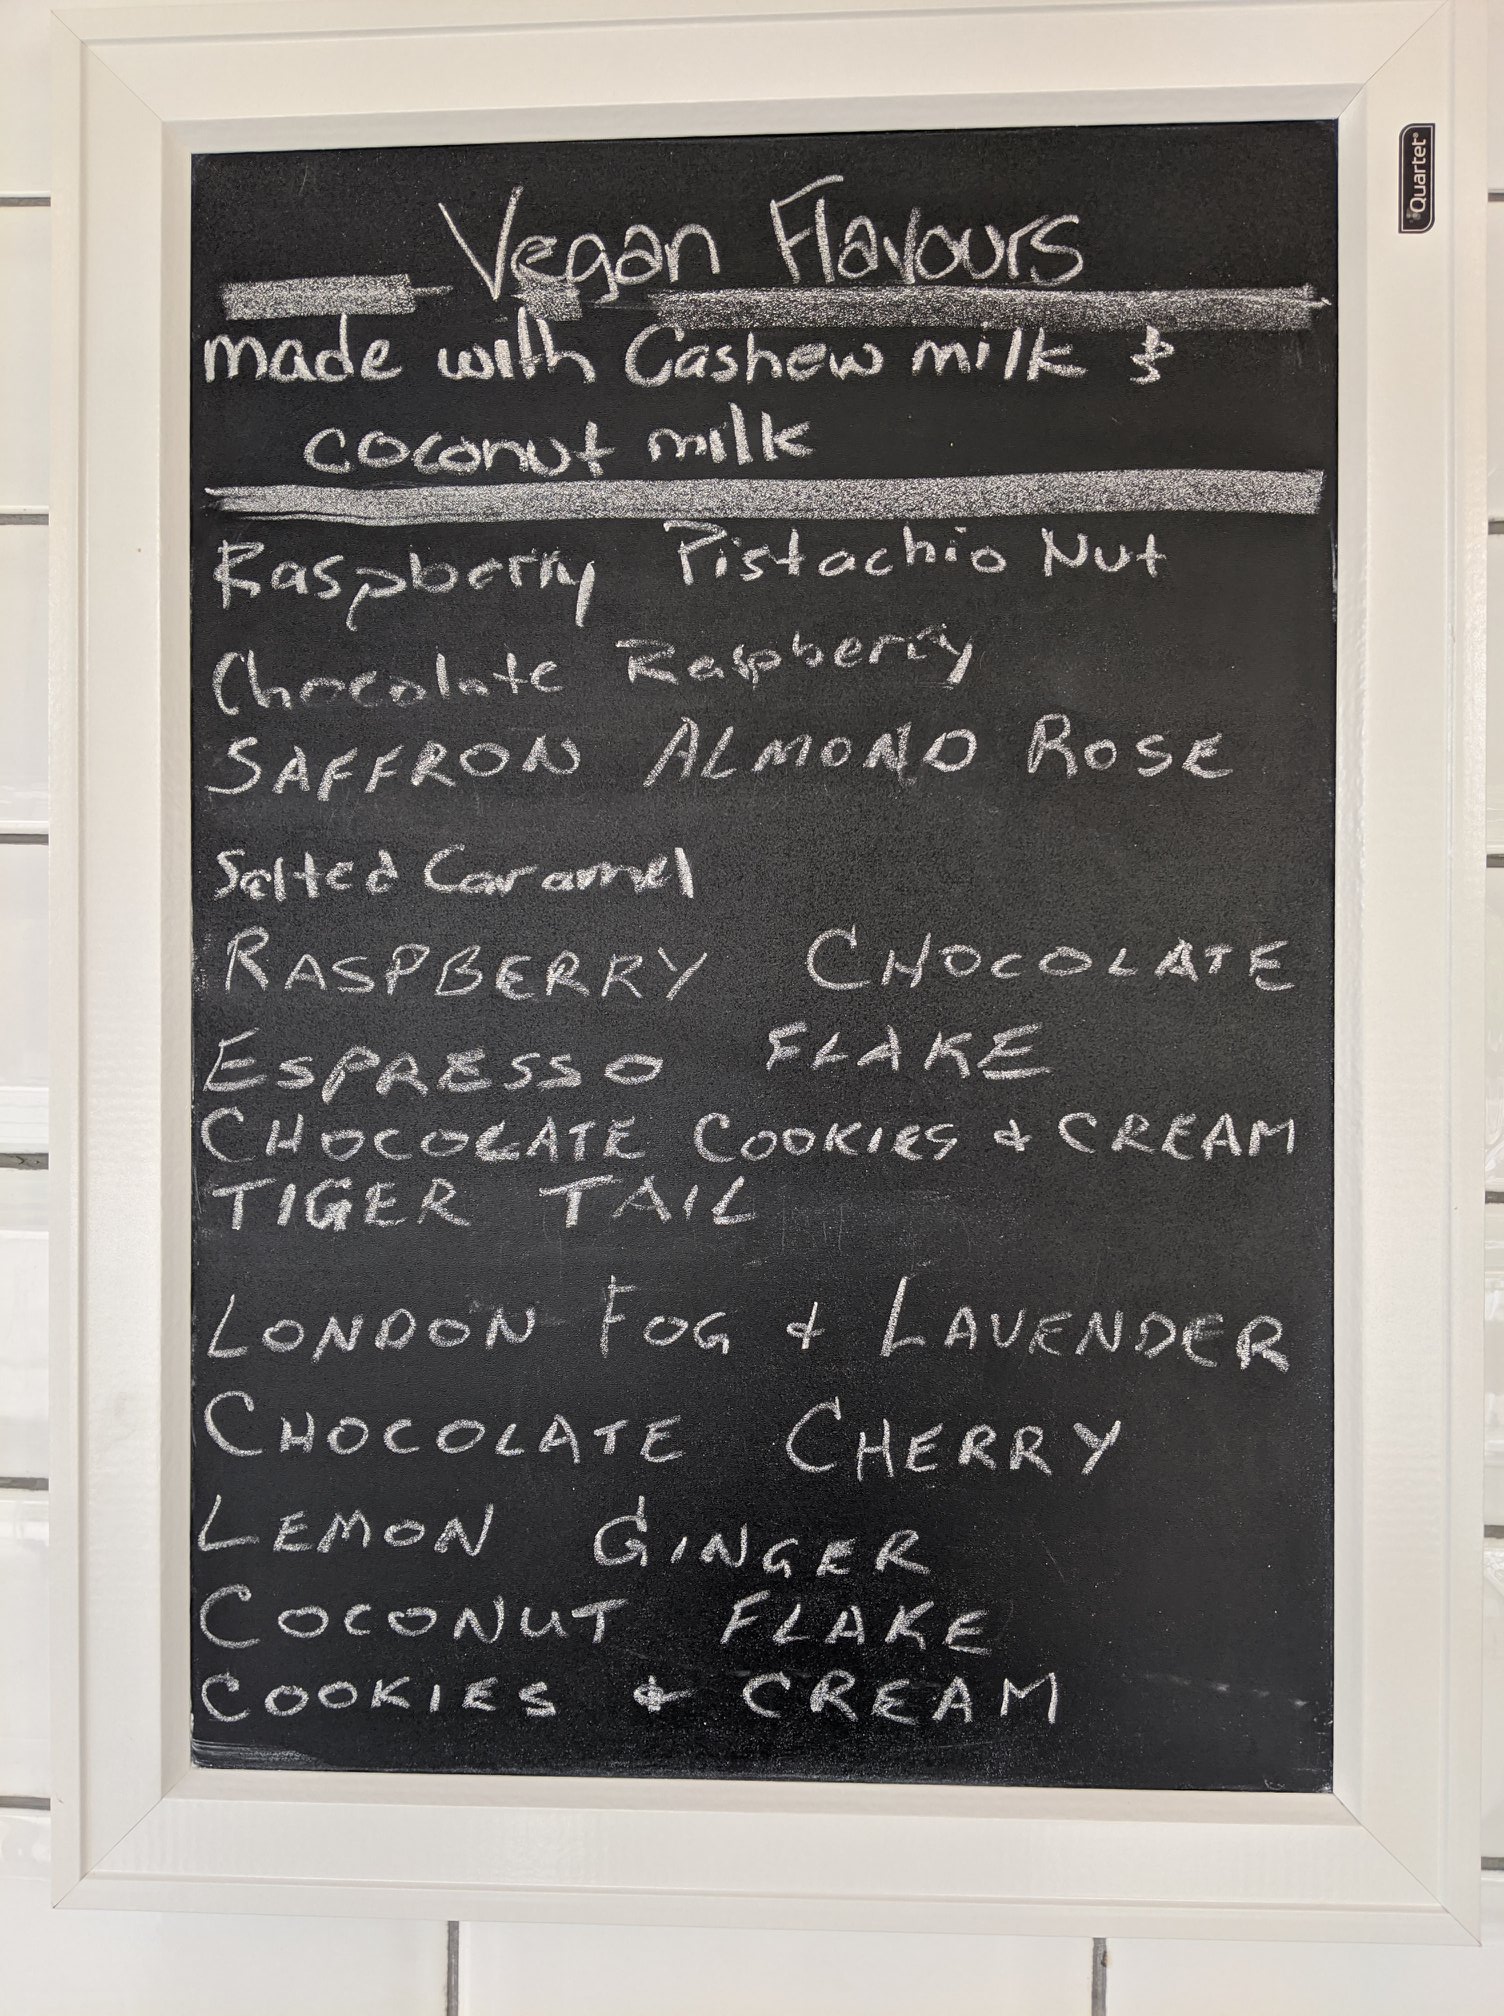 Quartet
Vegan Flavours
made with Cashew milk &
coconut milk
Raspberry Pistachio Nut
Chocolate Raspberry
SAFFRON ALMOND ROSE
Salted Caramel
RASPBERRY CHOCOLATE
ESPRESSO FLAKE
CHOCOLATE COOKIES & CREAM
TIGER TAIL
LONDON FOG & LAVENDER
CHOCOLATE CHERRY
LEMON GINGER
COCONUT FLAKE
COOKIES & CREAM